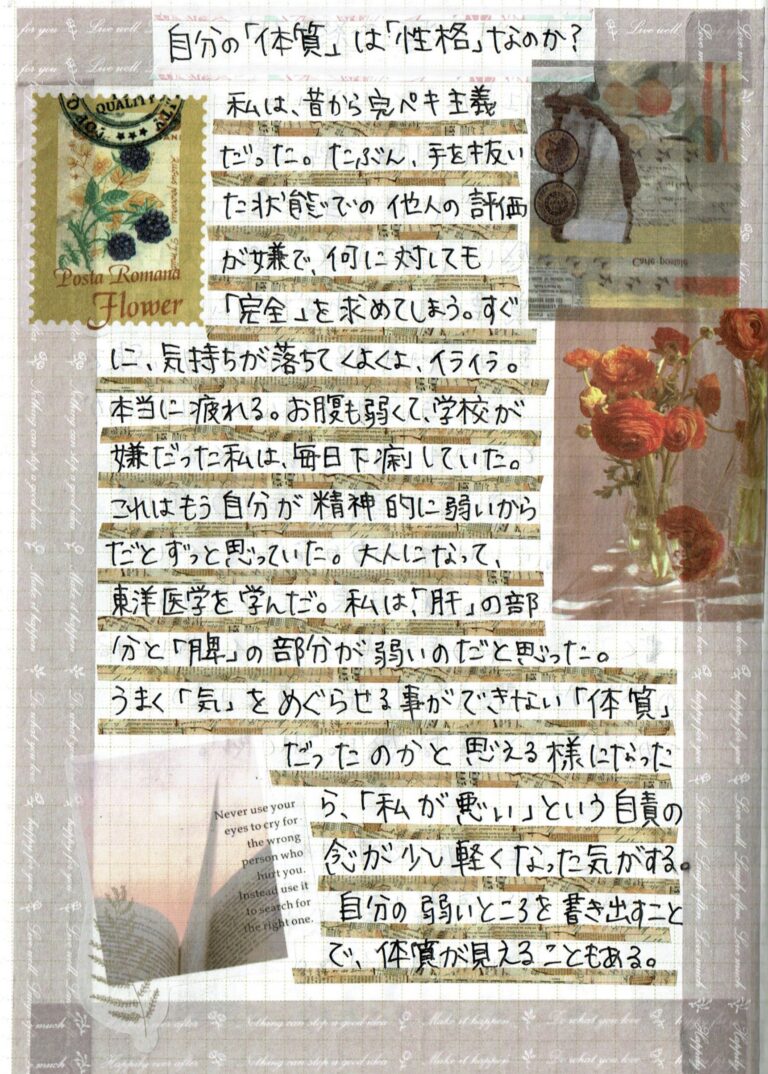 自分の「体質」は「性格」なのか?
私は、昔から完ペキ主義
だった。たぶん、手を抜い
た状態での他人の評価
が嫌で、何に対しても
「完全」を求めてしまう。すぐ
に、気持ちが落ちてくよくよ、イライラ。
本当に疲れる。お腹も弱くて、学校が
嫌だった私は、「毎日下痢」していた。
これはもう自分が精神的に弱いから
だとずっと思っていた。大人になって、
東洋医学を学んだ。私は、「肝」の部
分と「脾」の部分が弱いのだと思った。
うまく「気」をめぐらせる事ができない「体質」
だったのかと思える様になった
ら、「私が悪い」という自責の
念が少し軽くなった気がする。
自分の弱いところを書き出すこと
で、体質が見えることもある。
QUALITY
Posta Romana
Flower
Carte postale
Never use your
eyes to cry for
the wrong
person who
hurt you.
Instead use it
to search for
the right one.
for you
Live well,
Nothing can stop a good idea
Make it happen
Do what you love
happy for you
much
Happily ever after
Nothing can stop a good idea
Make it happen
Do what you love